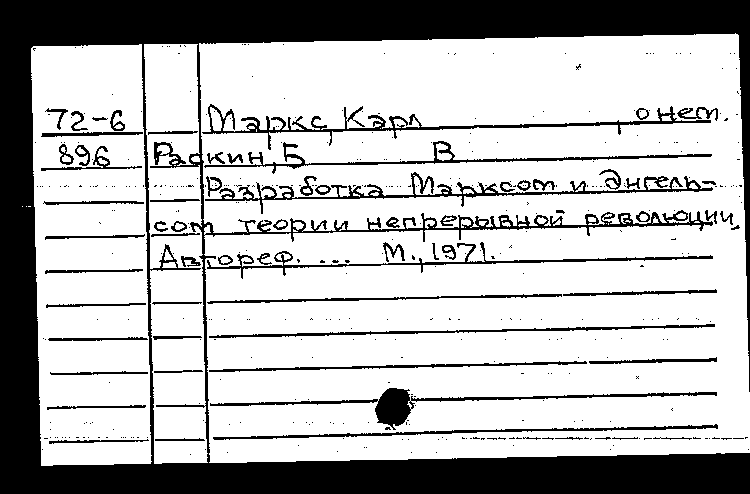 72-6 Маркс, Карл , о нем.
896 Раскин, Б В
Разработка Марксом и Энгель-
сом теории непрерывной революции.
Автореф. ... М., 1971.